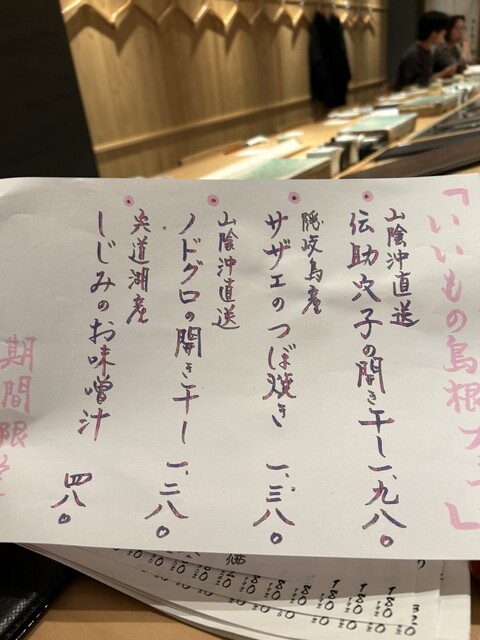 「いいもの島根フェア」
山陰沖直送
伝助穴子の開き干し 一、九八〇
隠岐島産
サザエのつぼ焼き 一、三八〇
山陰沖直送
ノドグロの開き干し 一、二八〇
宍道湖産
しじみのお味噌汁 四八〇
期間限定